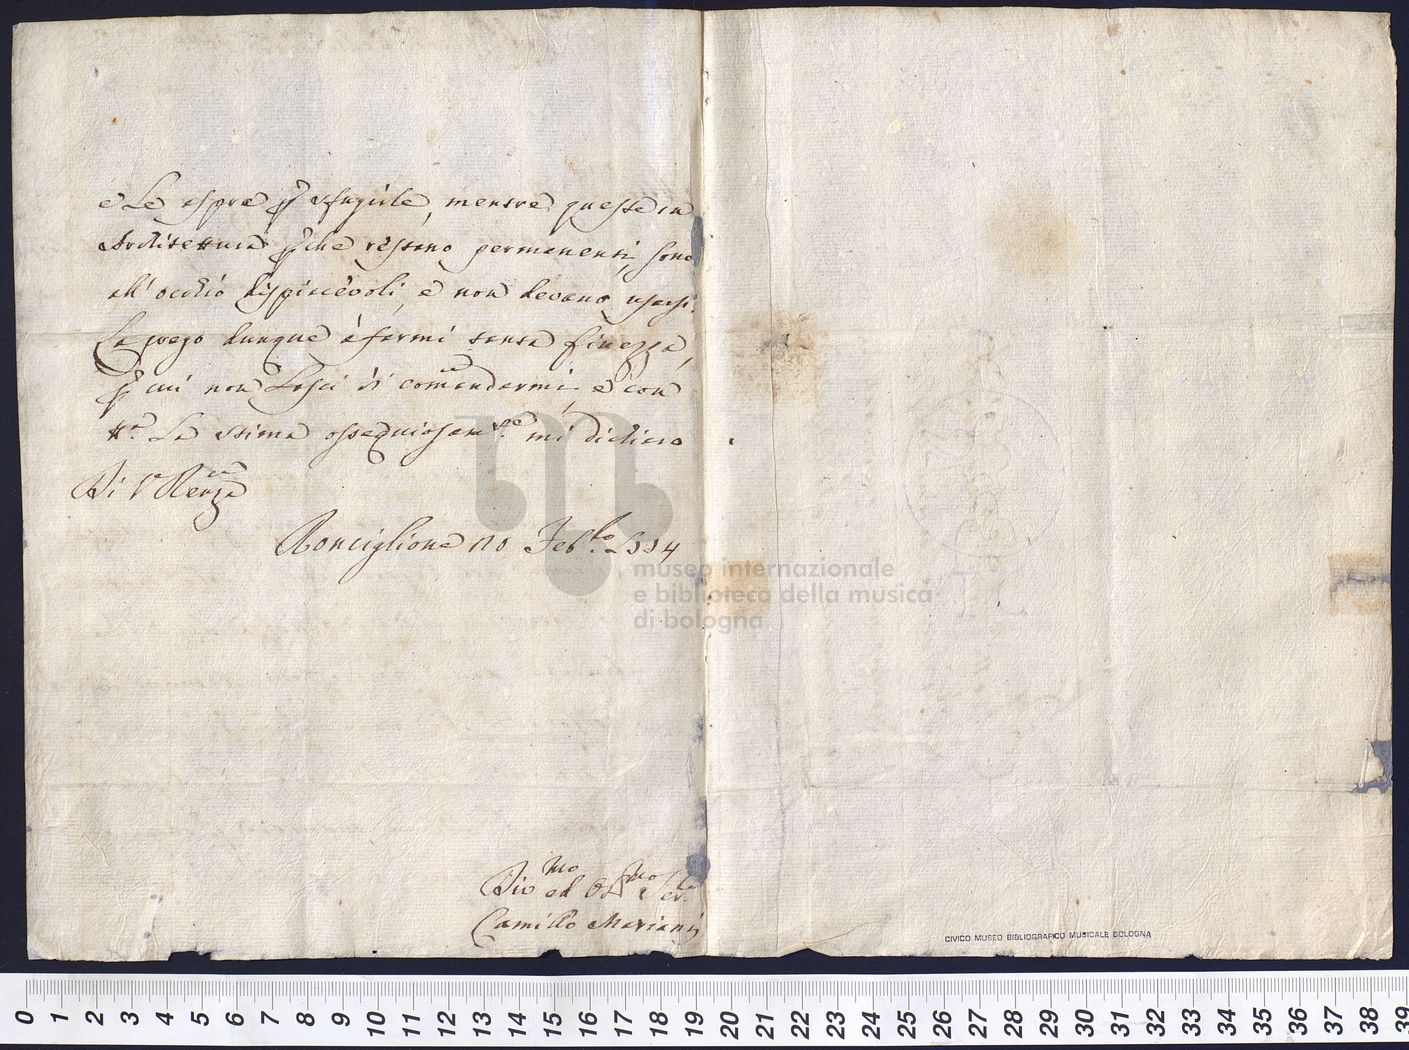 e Le aspre p sfugirle, mentre queste in
Architettura p che restano permanenti, sono
all'occhio dispiacevoli, e non devano usarsi.
La prego dunque à farmi tanta finezza,
p cui non Lasci di comandarmi, e con
tta La stima ossequiosamte mi dichiaro
Di V Renza
Ronciglione 20 Feb.ro
Divmo ed Obmo
Camillo Mariani
museo internazionale
e biblioteca della musica
di bologna
CIVICO MUSEO BIBLIOGRAFICO MUSICALE BOLOGNA
0 1 2 3 4 5 6 7 8 9 10 11 12 13 14 15 16 17 18 19 20 21 22 23 24 25 26 27 28 29 30 31 32 33 34 35 36 37 38 39